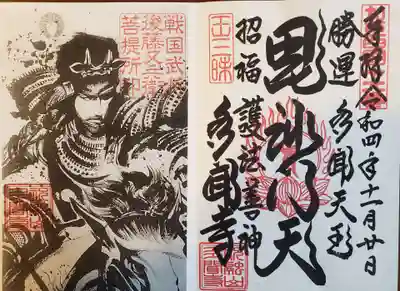 奉拝 令和四年十一月廿日
勝運 多聞天王
毘沙門天
招福 護法善神
多聞寺
戦国武将
後藤又兵衛
菩提所印